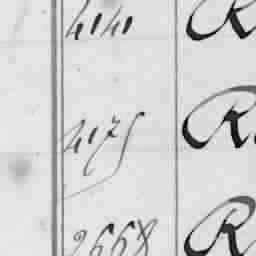 4141 R
4175 R
2668 R